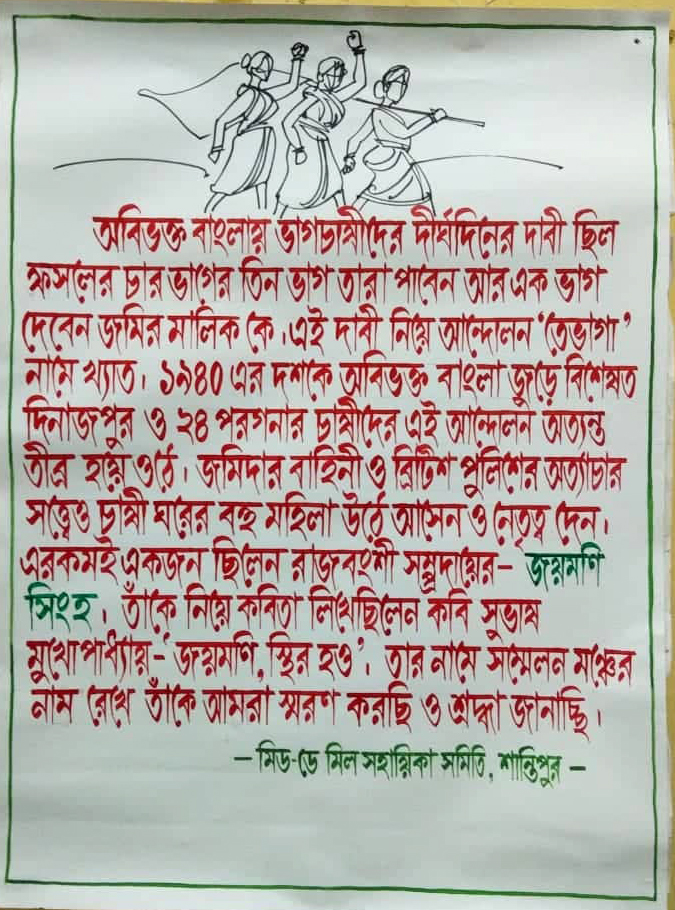 অবিভক্ত বাংলায় ভাগচাষীদের দীর্ঘদিনের দাবী ছিল
ফসলের চার ভাগের তিন ভাগ তারা পাবেন আর এক ভাগ
দেবেন জমির মালিক কে। এই দাবী নিয়ে আন্দোলন 'তেভাগা'
নামে খ্যাত। ১৯৪০ এর দশকে অবিভক্ত বাংলা জুড়ে বিশেষত
দিনাজপুর ও ২৪ পরগনার চাষীদের এই আন্দোলন অত্যন্ত
তীব্র হয়ে ওঠে। জমিদার বাহিনী ও ব্রিটিশ পুলিশের অত্যাচার
সত্ত্বেও চাষী ঘরের বহু মহিলা উঠে আসেন ও নেতৃত্ব দেন।
এরকমই একজন ছিলেন রাজবংশী সম্প্রদায়ের- জয়মণি
সিংহ। তাঁকে নিয়ে কবিতা লিখেছিলেন কবি সুভাষ
মুখোপাধ্যায়-'জয়মণি, স্থির হও'। তার নামে সম্মেলন মঞ্চের
নাম রেখে তাঁকে আমরা স্মরণ করছি ও শ্রদ্ধা জানাচ্ছি।
– মিড-ডে মিল সহায়িকা সমিতি, শান্তিপুর –